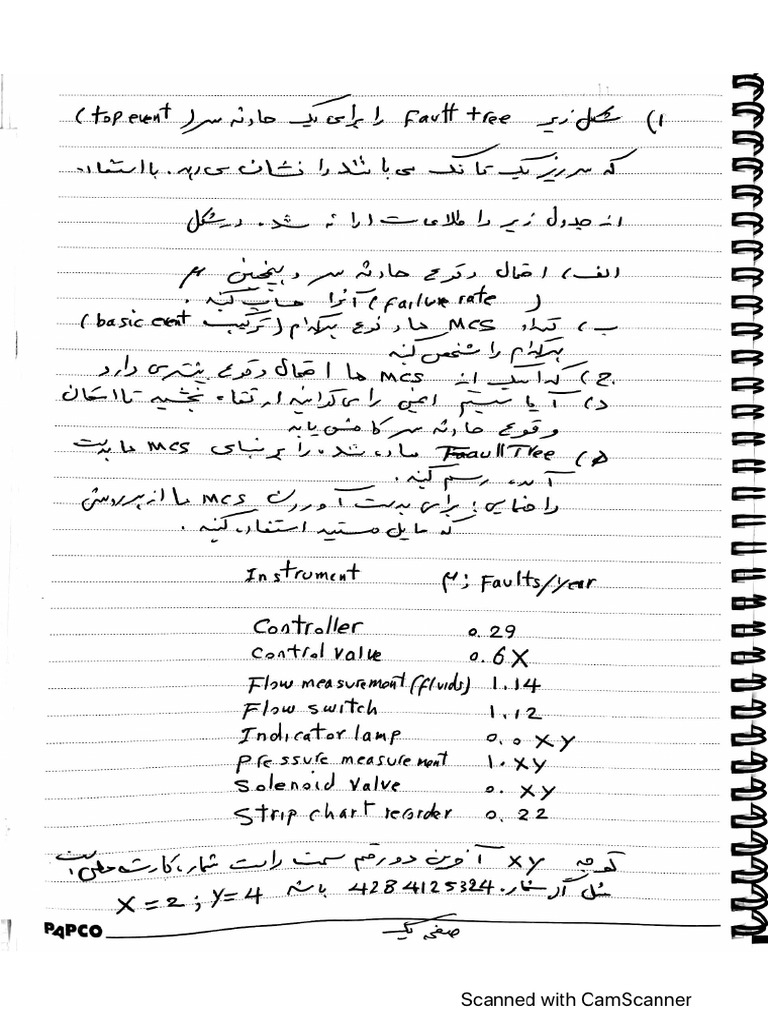 ۱) شکل زیر Fault tree را برای یک حادثه سر (top event)
که سرریز یک تانک می باشد را نشان می دهد. با استفاده
از جدول زیر و اطلاعات ارائه شده در شکل
الف) احتمال وقوع حادثه سر و همچنین μ
(failure rate) آنرا حساب کنید.
ب) تعداد MCS ها و نوع هرکدام (ترکیب basic event)
هرکدام را مشخص کنید
ج) کدامیک از MCS ها احتمال وقوع بیشتری دارد
د) آیا سیستم ایمنی را می توانید ارتقاء بخشید تا امکان
وقوع حادثه سر کاهش یابد
ه) Fault Tree ساده شده را بر مبنای MCS ها بدست
آمده رسم کنید.
راهنمایی: برای بدست آوردن MCS ها از هر روشی
که مایل هستید استفاده کنید.
Instrument μ; Faults/year
Controller 0.29
Control valve 0.6X
Flow measurement (fluids) 1.14
Flow switch 1.12
Indicator lamp 0.0XY
Pressure measurement 1.XY
Solenoid valve 0.XY
Strip chart recorder 0.22
توجه XY آخرین دو رقم سمت راست شماره کارت ملی است
مثل اگر شماره 4284125324 باشد X=2; Y=4
PAPCO
صفحه یک
Scanned with CamScanner